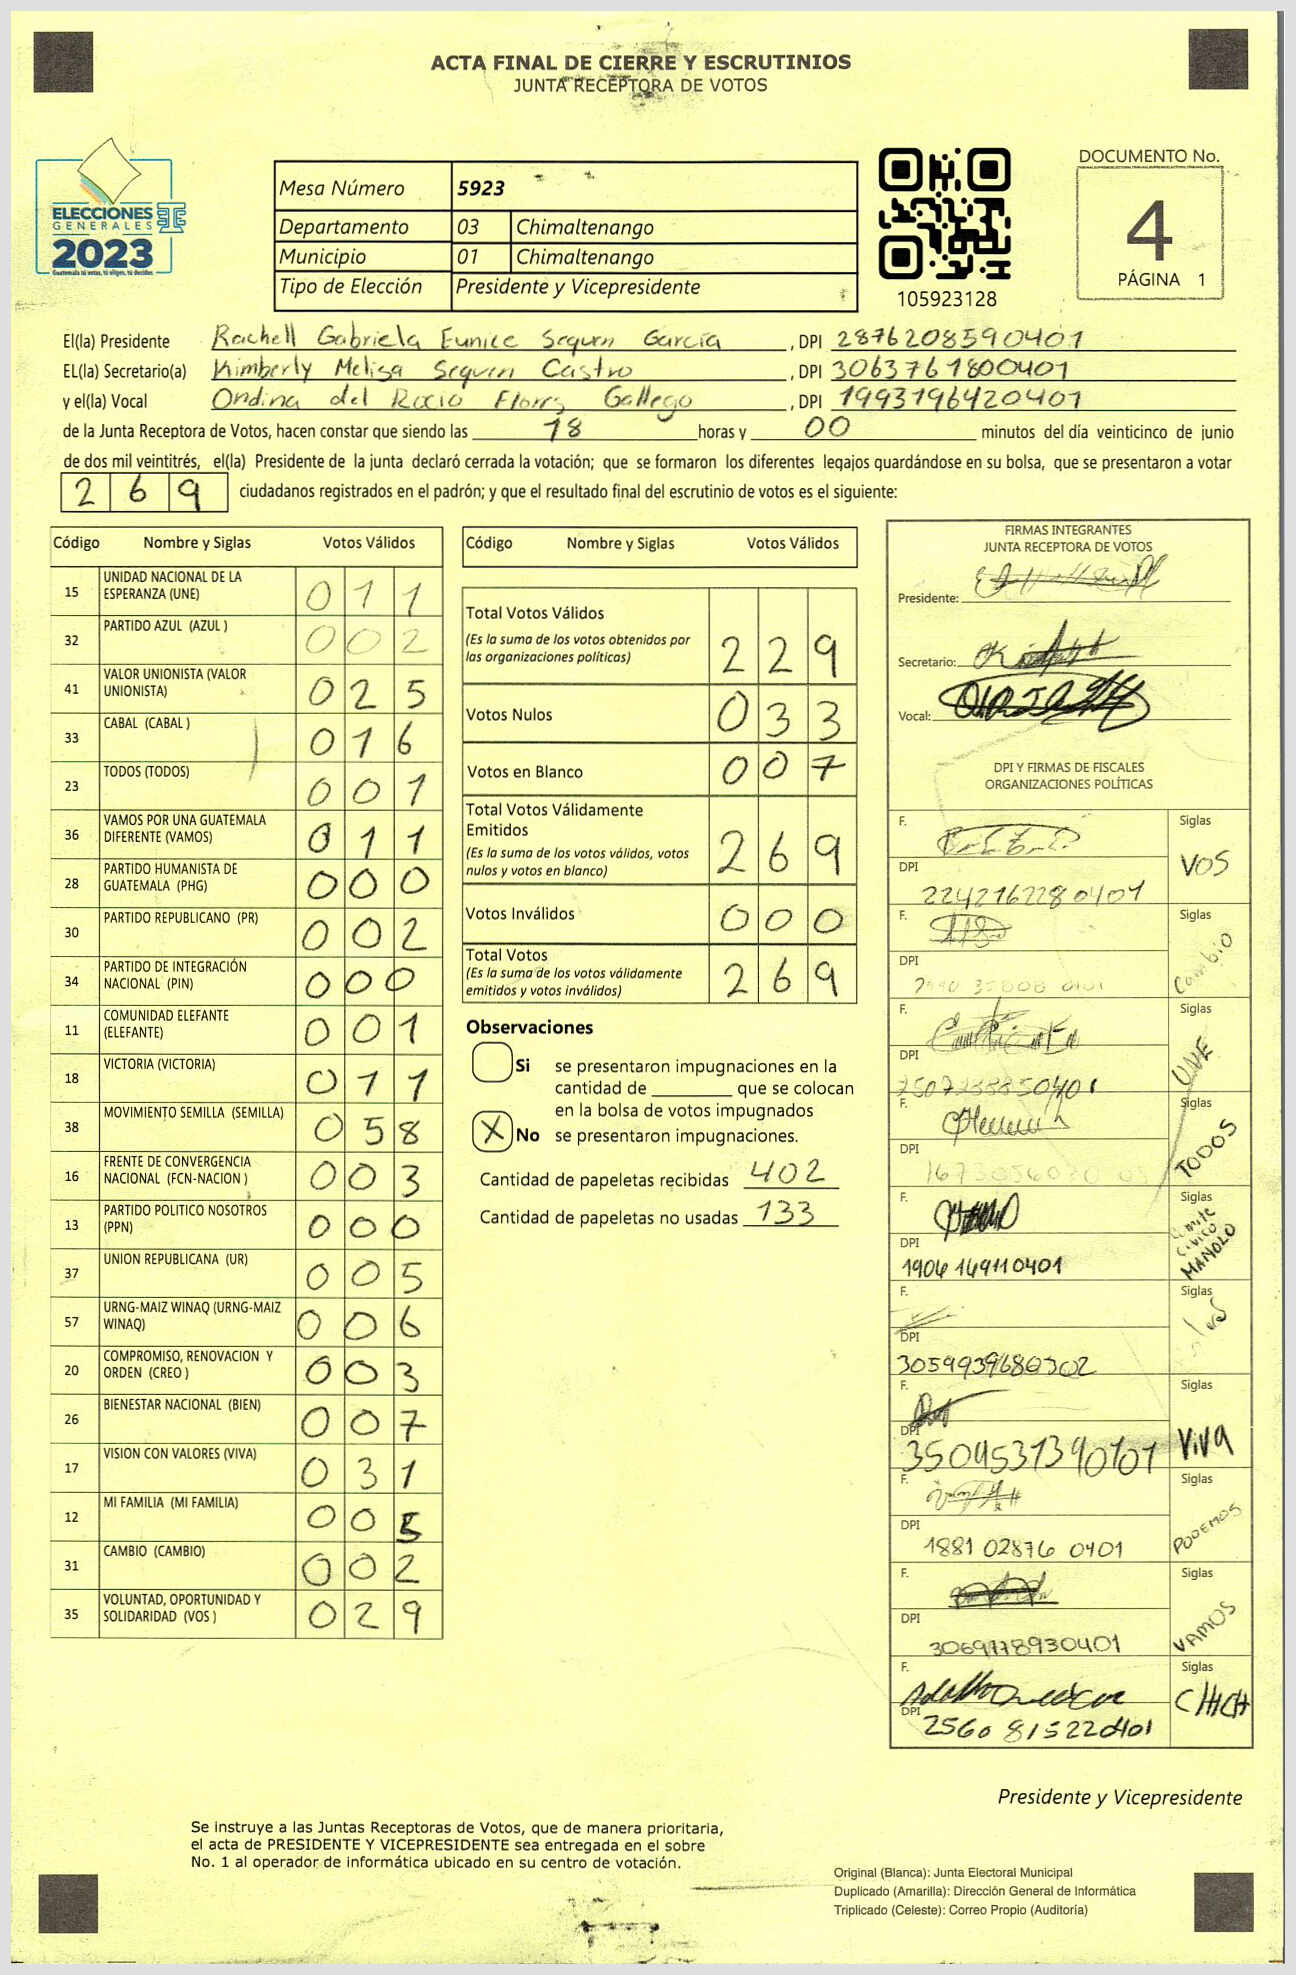 ACTA FINAL DE CIERRE Y ESCRUTINIOS
JUNTA RECEPTORA DE VOTOS
ELECCIONES
GENERALES
2023
Guatemala tú votas, tú eliges, tú decides
Mesa Número 5923
Departamento 03 Chimaltenango
Municipio 01 Chimaltenango
Tipo de Elección Presidente y Vicepresidente
105923128
DOCUMENTO No.
4
PÁGINA 1
El(la) Presidente Rachell Gabriela Eunice Sequen García , DPI 2876208590401
EL(la) Secretario(a) Kimberly Melisa Sequen Castro , DPI 3063761800401
y el(la) Vocal Ondina del Rocio Flores Gallego , DPI 1993196420401
de la Junta Receptora de Votos, hacen constar que siendo las 18 horas y 00 minutos del día veinticinco de junio
de dos mil veintitrés, el(la) Presidente de la junta declaró cerrada la votación; que se formaron los diferentes legajos guardándose en su bolsa, que se presentaron a votar
269 ciudadanos registrados en el padrón; y que el resultado final del escrutinio de votos es el siguiente:
Código Nombre y Siglas Votos Válidos
15 UNIDAD NACIONAL DE LA ESPERANZA (UNE) 011
32 PARTIDO AZUL (AZUL ) 002
41 VALOR UNIONISTA (VALOR UNIONISTA) 025
33 CABAL (CABAL ) 016
23 TODOS (TODOS) 001
36 VAMOS POR UNA GUATEMALA DIFERENTE (VAMOS) 011
28 PARTIDO HUMANISTA DE GUATEMALA (PHG) 000
30 PARTIDO REPUBLICANO (PR) 002
34 PARTIDO DE INTEGRACIÓN NACIONAL (PIN) 000
11 COMUNIDAD ELEFANTE (ELEFANTE) 001
18 VICTORIA (VICTORIA) 011
38 MOVIMIENTO SEMILLA (SEMILLA) 058
16 FRENTE DE CONVERGENCIA NACIONAL (FCN-NACION ) 003
13 PARTIDO POLITICO NOSOTROS (PPN) 000
37 UNION REPUBLICANA (UR) 005
57 URNG-MAIZ WINAQ (URNG-MAIZ WINAQ) 006
20 COMPROMISO, RENOVACION Y ORDEN (CREO ) 003
26 BIENESTAR NACIONAL (BIEN) 007
17 VISION CON VALORES (VIVA) 031
12 MI FAMILIA (MI FAMILIA) 005
31 CAMBIO (CAMBIO) 002
35 VOLUNTAD, OPORTUNIDAD Y SOLIDARIDAD (VOS ) 029
Código Nombre y Siglas Votos Válidos
Total Votos Válidos 229
(Es la suma de los votos obtenidos por
las organizaciones políticas)
Votos Nulos 033
Votos en Blanco 007
Total Votos Válidamente
Emitidos 269
(Es la suma de los votos válidos, votos
nulos y votos en blanco)
Votos Inválidos 000
Total Votos 269
(Es la suma de los votos válidamente
emitidos y votos inválidos)
Observaciones
Si se presentaron impugnaciones en la
cantidad de ________ que se colocan
en la bolsa de votos impugnados
X No se presentaron impugnaciones.
Cantidad de papeletas recibidas 402
Cantidad de papeletas no usadas 133
FIRMAS INTEGRANTES
JUNTA RECEPTORA DE VOTOS
Presidente:
Secretario:
Vocal:
DPI Y FIRMAS DE FISCALES
ORGANIZACIONES POLÍTICAS
F. Siglas
VOS
DPI
2242162280401
F. Siglas
Cambio
DPI
F. Siglas
UNE
DPI
F. Siglas
TODOS
DPI
F. Siglas
Comite
Civico
MANOLO
DPI
1904149110401
F. Siglas
DPI
3059939680302
F. Siglas
VIVA
DPI
3509531390101
F. Siglas
PODEMOS
DPI
1881 02876 0401
F. Siglas
VAMOS
DPI
3069178930401
F. Siglas
DPI
2560 81522 0401
Presidente y Vicepresidente
Se instruye a las Juntas Receptoras de Votos, que de manera prioritaria,
el acta de PRESIDENTE Y VICEPRESIDENTE sea entregada en el sobre
No. 1 al operador de informática ubicado en su centro de votación.
Original (Blanca): Junta Electoral Municipal
Duplicado (Amarilla): Dirección General de Informática
Triplicado (Celeste): Correo Propio (Auditoría)